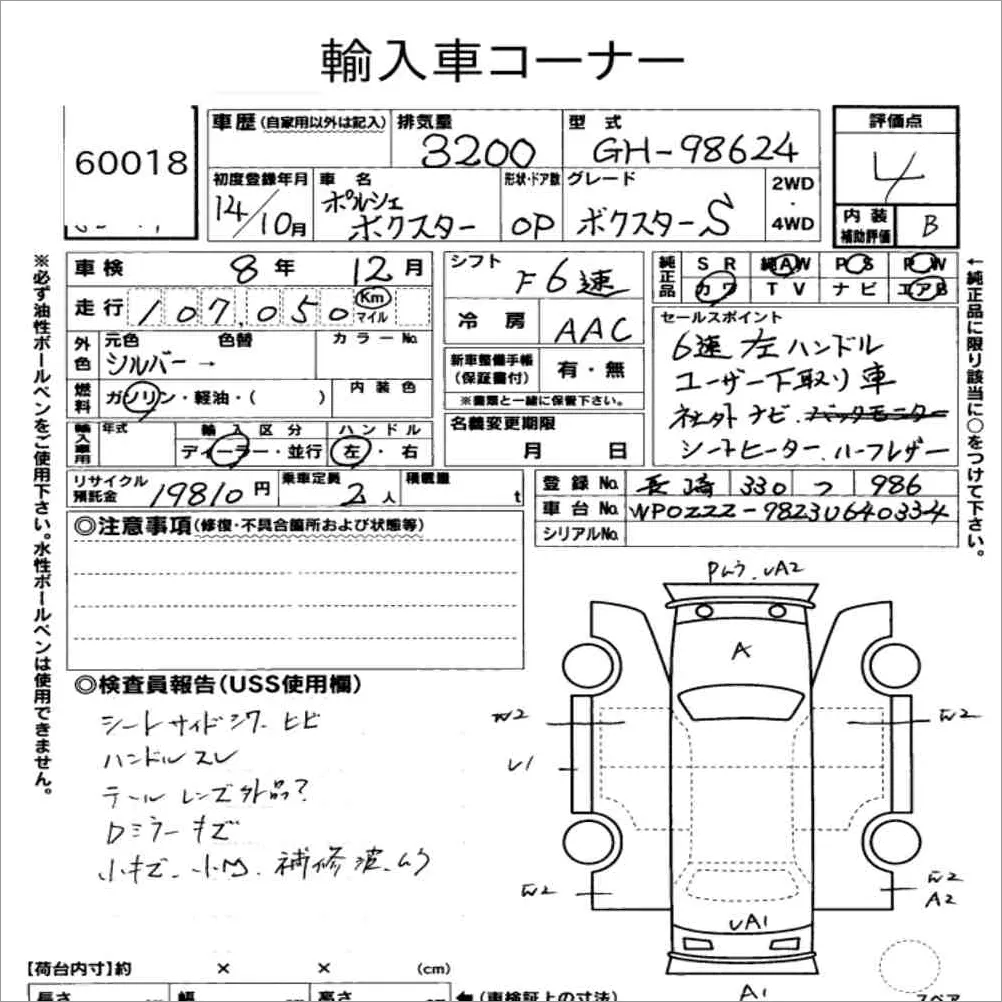 輸入車コーナー
60018
車歴(自家用以外は記入)
排気量
3200
型式
GH-98624
評価点
4
初度登録年月
14/10月
車名
ポルシェ
ボクスター
形状・ドア数
OP
グレード
ボクスターS
2WD
・
4WD
内装
補助評価
B
※必ず油性ボールペンをご使用下さい。水性ボールペンは使用できません。
車検
8年 12月
走行
107,050
Km
マイル
外色
元色
色替
シルバー →
カラーNo.
燃料
ガソリン・軽油・( )
内装色
輸入車用
年式
輸入区分
ディーラー・並行
ハンドル
左・右
リサイクル
預託金
19810円
乗車定員
2人
積載量
t
シフト
F6速
冷房
AAC
新車整備手帳
(保証書付)
有・無
※書類と一緒に保管下さい。
名義変更期限
月 日
純正品
SR
純AW
PS
PW
カワ
TV
ナビ
エアB
セールスポイント
6速 左ハンドル
ユーザー下取り車
社外ナビ、バックモニター
シートヒーター、ハーフレザー
←純正品に限り該当に○をつけて下さい。
登録No.
長崎 330 つ 986
車台No.
WP0ZZZ-98Z3U640334
シリアルNo.
◎注意事項(修復・不具合箇所および状態等)
◎検査員報告(USS使用欄)
シートサイドシワ、ヒビ
ハンドルスレ
テールレンズ外品?
Dミラーキズ
小キズ、小凹、補修波、ムラ
Pムラ、UA2
A
W2
W2
U1
W2
W2
A2
UA1
A1
【荷台内寸】約 × × (cm)
長さ
幅
高さ
(車検証上の寸法)
スペア